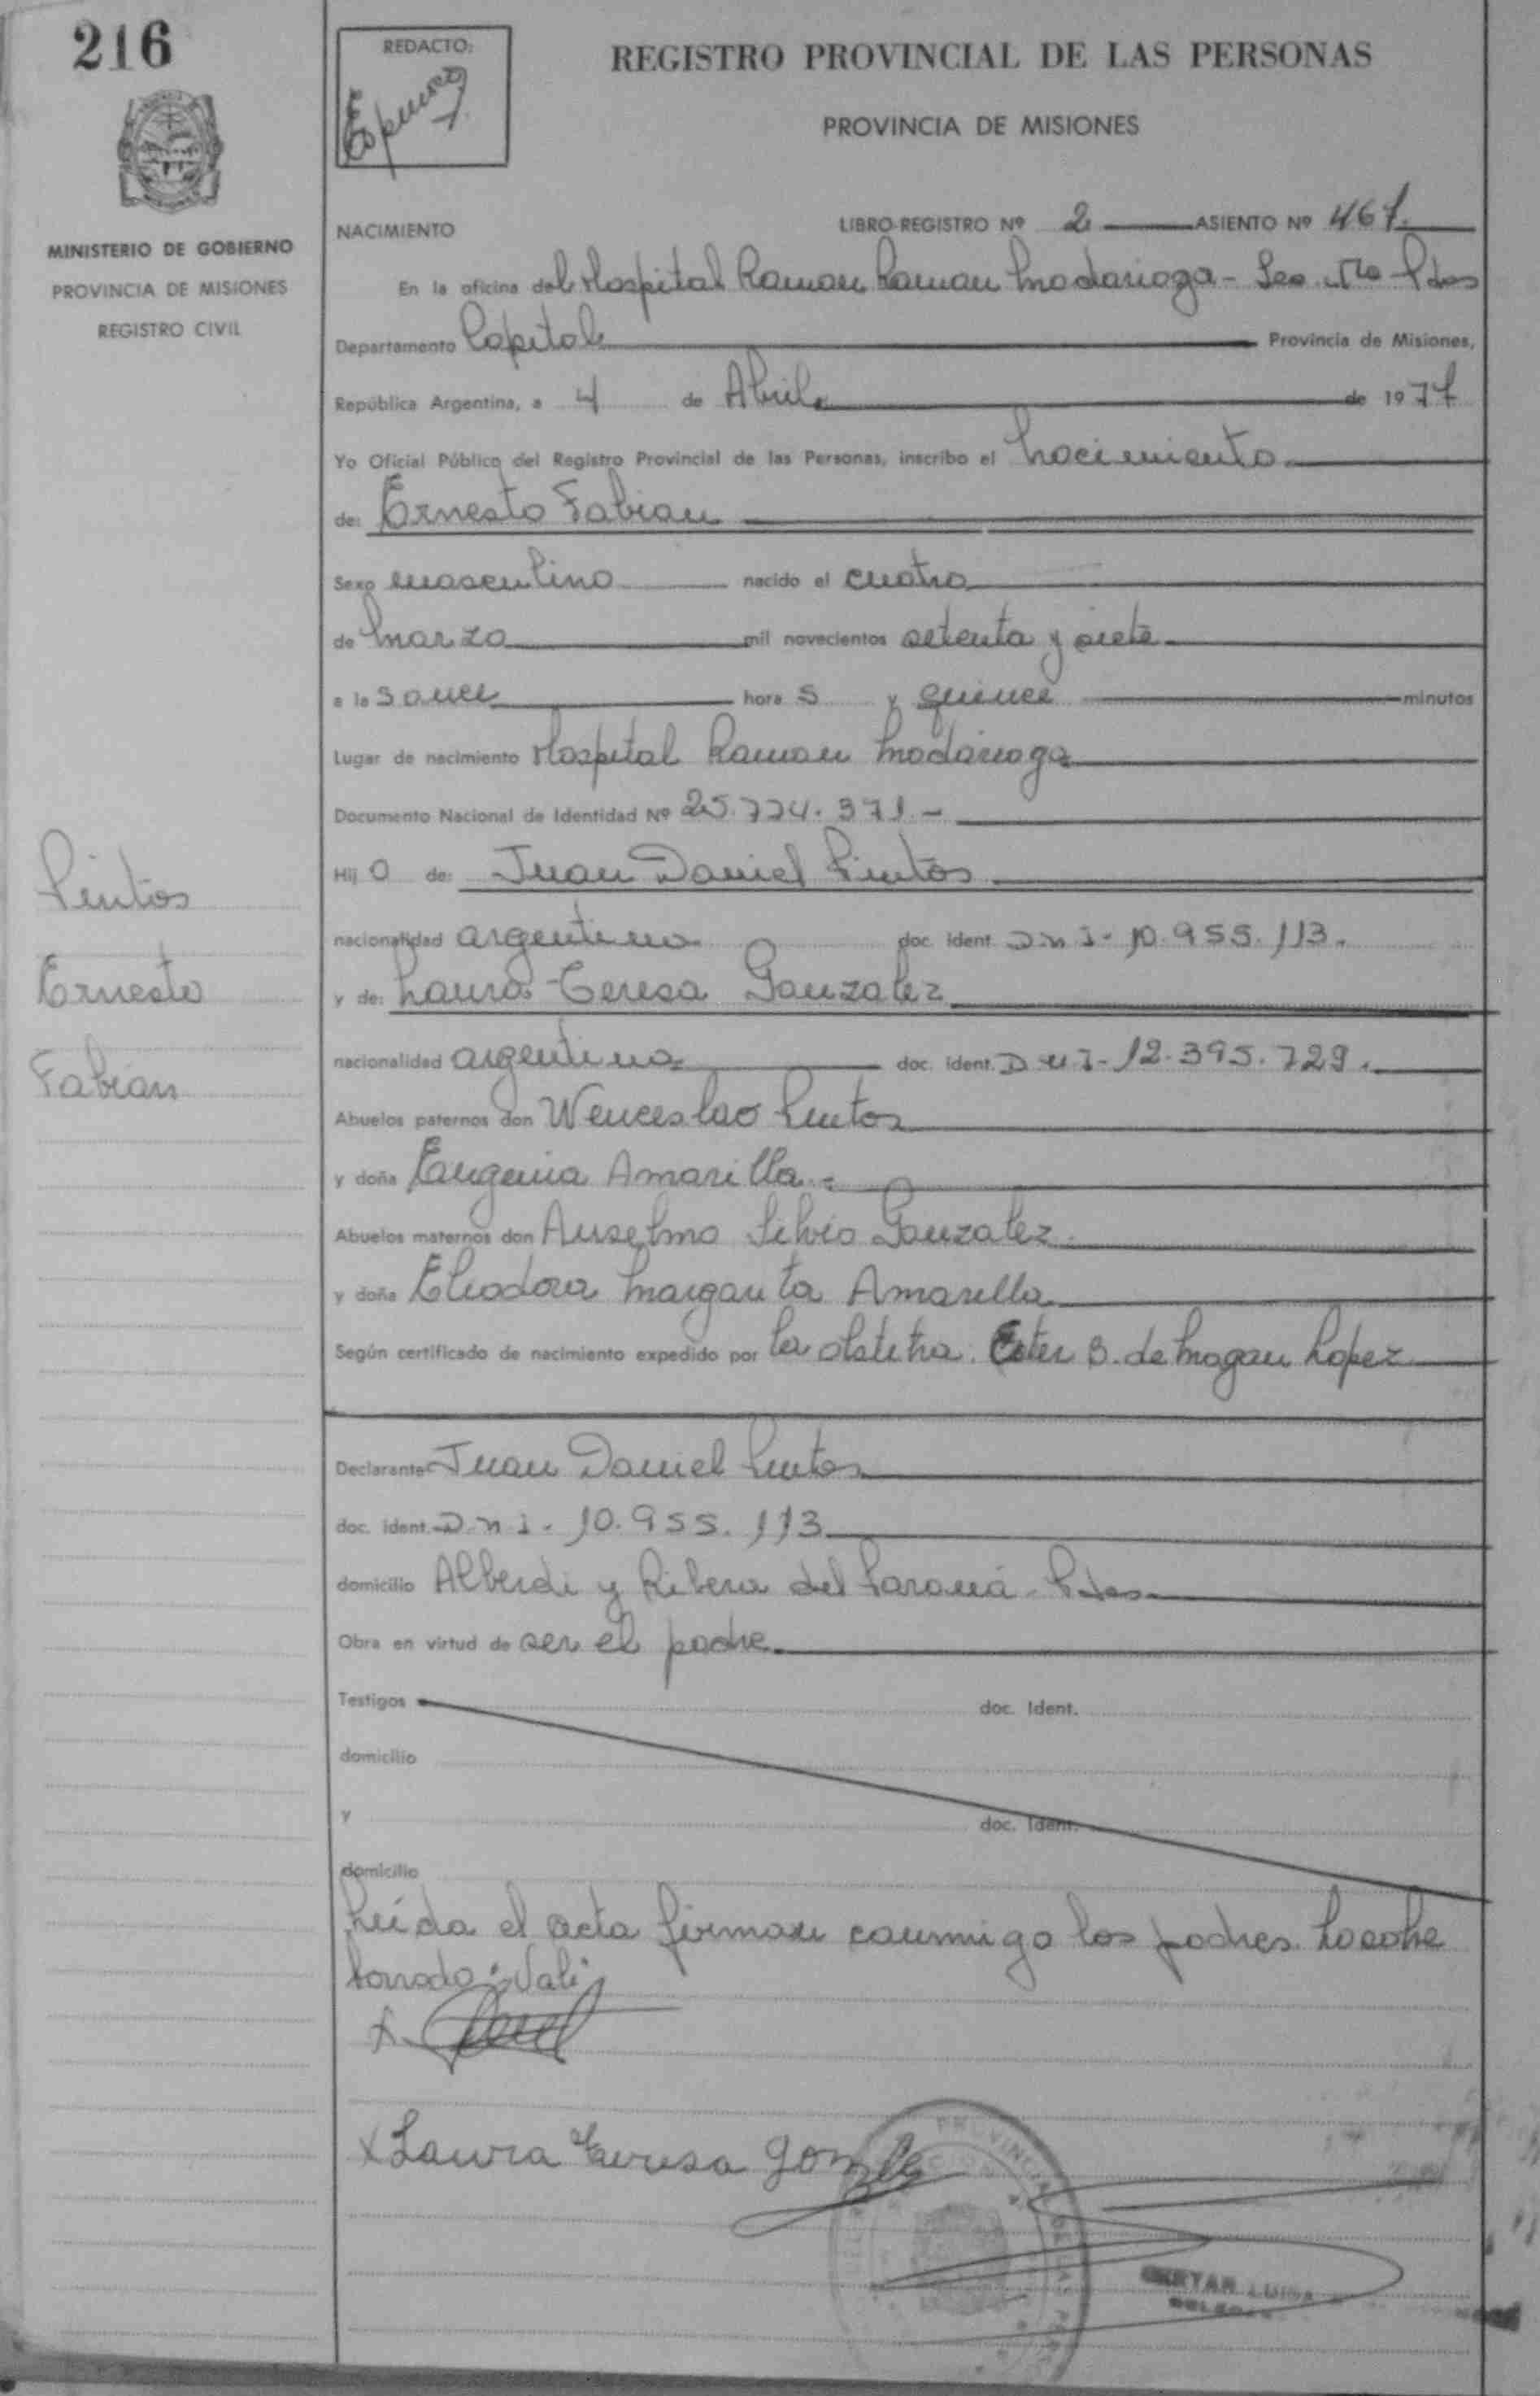 216
REDACTO:
REGISTRO PROVINCIAL DE LAS PERSONAS
PROVINCIA DE MISIONES
MINISTERIO DE GOBIERNO
PROVINCIA DE MISIONES
REGISTRO CIVIL
NACIMIENTO LIBRO-REGISTRO Nº 2 ASIENTO Nº 467.
En la oficina del Hospital Ramon Ramon Madariaga - Pdas
Departamento Capital Provincia de Misiones,
República Argentina, a 4 de Abril de 1977
Yo Oficial Público del Registro Provincial de las Personas, inscribo el nacimiento
de: Ernesto Fabian
Sexo masculino nacido el cuatro
de marzo mil novecientos setenta y siete
a la s once hora s y quince minutos
Lugar de nacimiento Hospital Ramon Madariaga
Documento Nacional de Identidad Nº 25.774.371.-
Hij o de: Juan Daniel Pintos
nacionalidad argentino doc. ident. D n i - 10.955.113.
y de: Laura Teresa Gonzalez
nacionalidad argentina doc. ident. D n i - 12.395.729.
Abuelos paternos don Wenceslao Pintos
y doña Eugenia Amarilla
Abuelos maternos don Anselmo Silvio Gonzalez
y doña Eleodora Margarita Amarilla
Según certificado de nacimiento expedido por la obstetra. Ester B. de Magan Lopez
Pintos
Ernesto
Fabian
Declarante Juan Daniel Pintos
doc. ident. D n i - 10.955.113
domicilio Alberdi y Ribera del Paraná - Pdas
Obra en virtud de ser el padre
Testigos doc. Ident.
domicilio
y doc. Ident.
domicilio
Leída el acta firman conmigo los padres. Lo sobre
borrado: Vale
x
x Laura Teresa Gonzalez